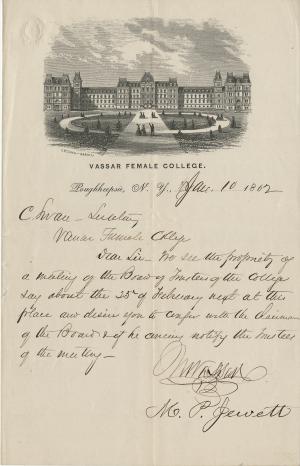 VASSAR FEMALE COLLEGE.
Poughkeepsie, N. Y., Jan. 10 1862
C. Swan - Secretary
Vassar Female College
Dear Sir - We see the propriety of
a meeting of the Board of Trustees of the College
say about the 25th of February next at this
place and desire you to confer with the Chairman
of the Board & if he concurs notify the Trustees
of the meeting -
M. P. Jewett